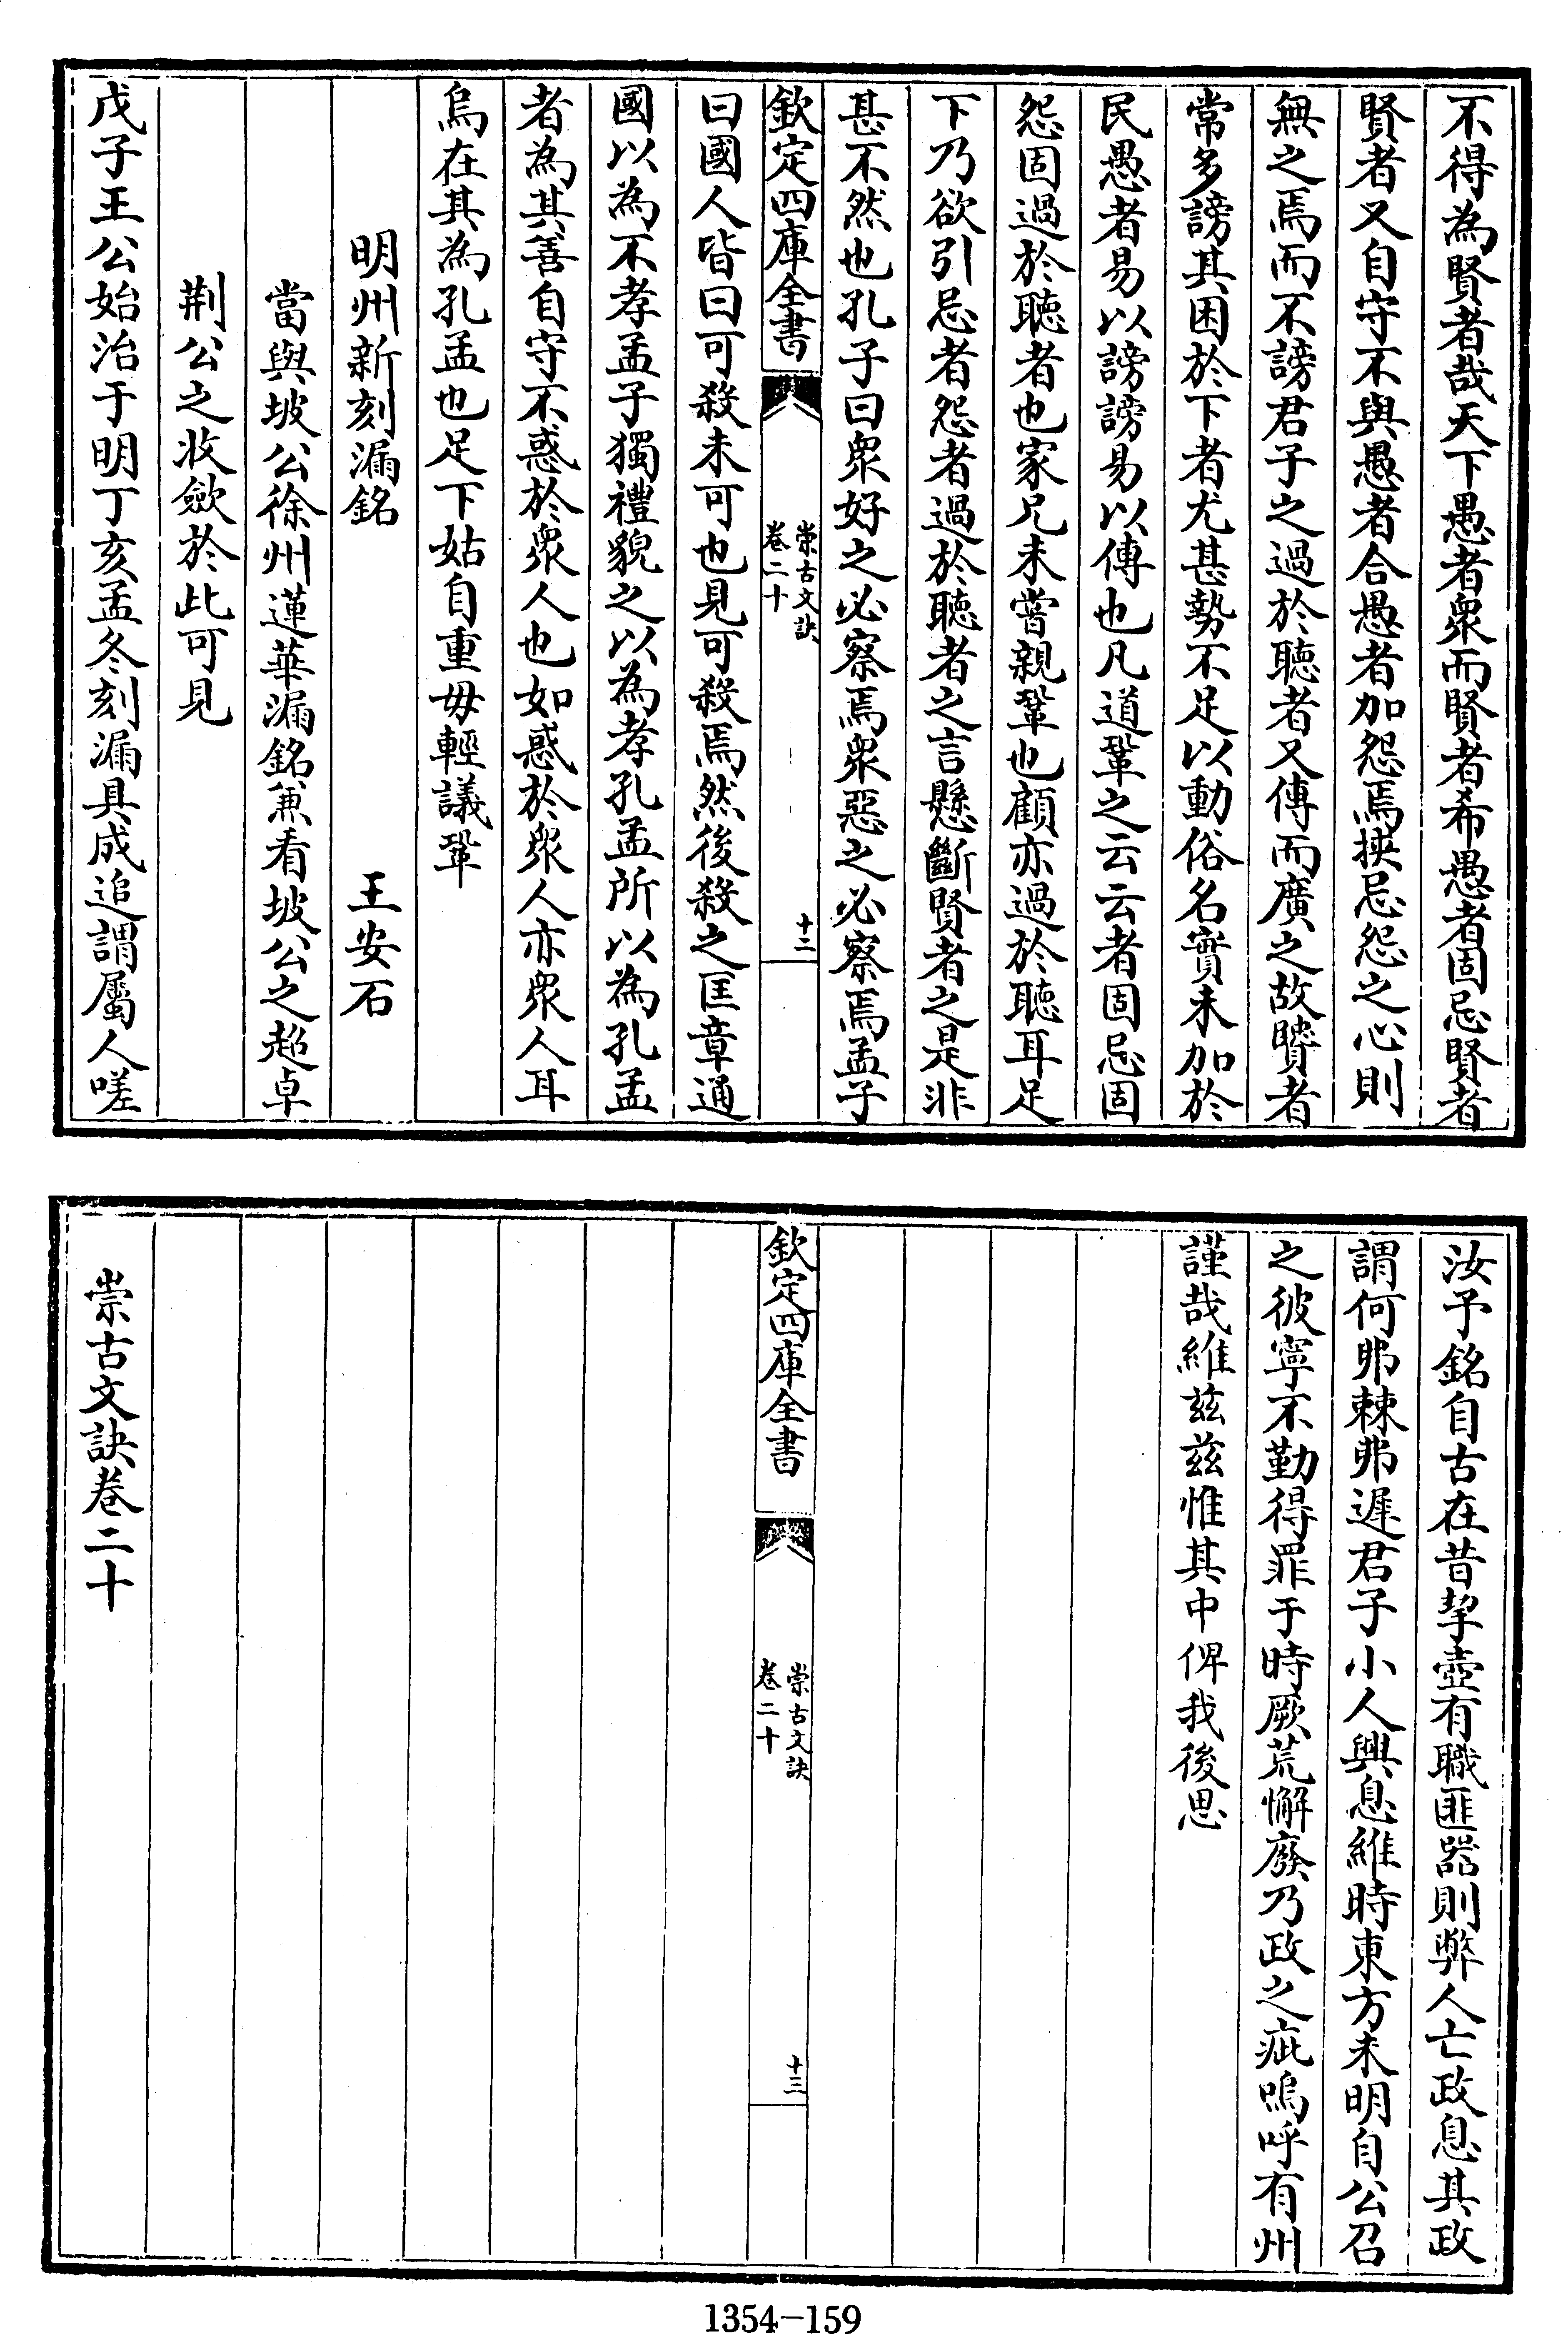 不得為賢者哉天下愚者衆而賢者希愚者固忌賢者
賢者又自守不與愚者合愚者加怨焉挾忌怨之心則
無之焉而不謗君子之過於聽者又傳而廣之故賢者
常多謗其困於下者尤甚勢不足以動俗名實未加於
民愚者易以謗謗易以傳也凡道鞏之云云者固忌固
怨固過於聽者也家兄未嘗親鞏也顧亦過於聽耳足
下乃欲引忌者怨者過於聽者之言懸斷賢者之是非
甚不然也孔子曰衆好之必察焉衆惡之必察焉孟子
欽定四庫全書
崇古文訣
卷二十
十二
曰國人皆曰可殺未可也見可殺焉然後殺之匡章通
國以為不孝孟子獨禮貌之以為孝孔孟所以為孔孟
者為其善自守不惑於衆人也如惑於衆人亦衆人耳
烏在其為孔孟也足下姑自重毋輕議鞏
明州新刻漏銘 王安石
當與坡公徐州蓮華漏銘兼看坡公之超卓
荆公之收斂於此可見
戊子王公始治于明丁亥孟冬刻漏具成追謂屬人嗟
汝予銘自古在昔挈壺有職匪器則弊人亡政息其政
謂何弗棘弗遲君子小人興息維時東方未明自公召
之彼寧不勤得罪于時厥荒懈廢乃政之疵嗚呼有州
謹哉維兹兹惟其中俾我後思
欽定四庫全書
崇古文訣
卷二十
十三
崇古文訣卷二十
1354-159